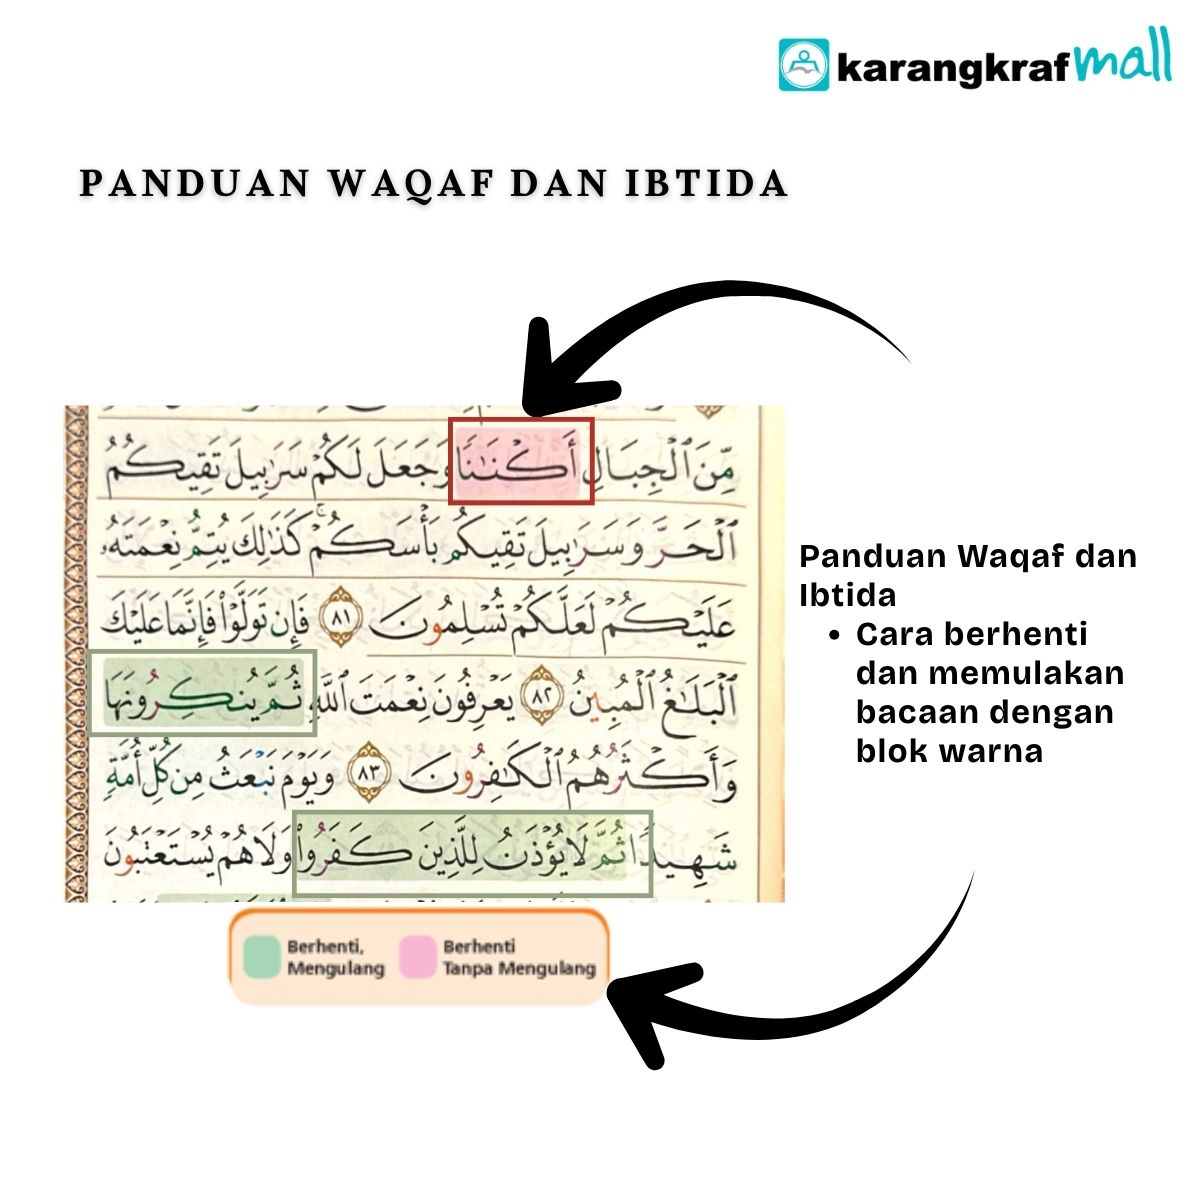 karangkraf mall
PANDUAN WAQAF DAN IBTIDA
مِّنَ ٱلْجِبَالِ أَكْنَـٰنًا وَجَعَلَ لَكُمْ سَرَٰبِيلَ تَقِيكُمُ
ٱلْحَرَّ وَسَرَٰبِيلَ تَقِيكُم بَأْسَكُمْ ۚ كَذَٰلِكَ يُتِمُّ نِعْمَتَهُۥ
عَلَيْكُمْ لَعَلَّكُمْ تُسْلِمُونَ ٨١ فَإِن تَوَلَّوْا۟ فَإِنَّمَا عَلَيْكَ
ٱلْبَلَـٰغُ ٱلْمُبِينُ ٨٢ يَعْرِفُونَ نِعْمَتَ ٱللَّهِ ثُمَّ يُنكِرُونَهَا
وَأَكْثَرُهُمُ ٱلْكَـٰفِرُونَ ٨٣ وَيَوْمَ نَبْعَثُ مِن كُلِّ أُمَّةٍ
شَهِيدًا ثُمَّ لَا يُؤْذَنُ لِلَّذِينَ كَفَرُوا۟ وَلَا هُمْ يُسْتَعْتَبُونَ
Berhenti,
Mengulang
Berhenti
Tanpa Mengulang
Panduan Waqaf dan
Ibtida
• Cara berhenti
dan memulakan
bacaan dengan
blok warna